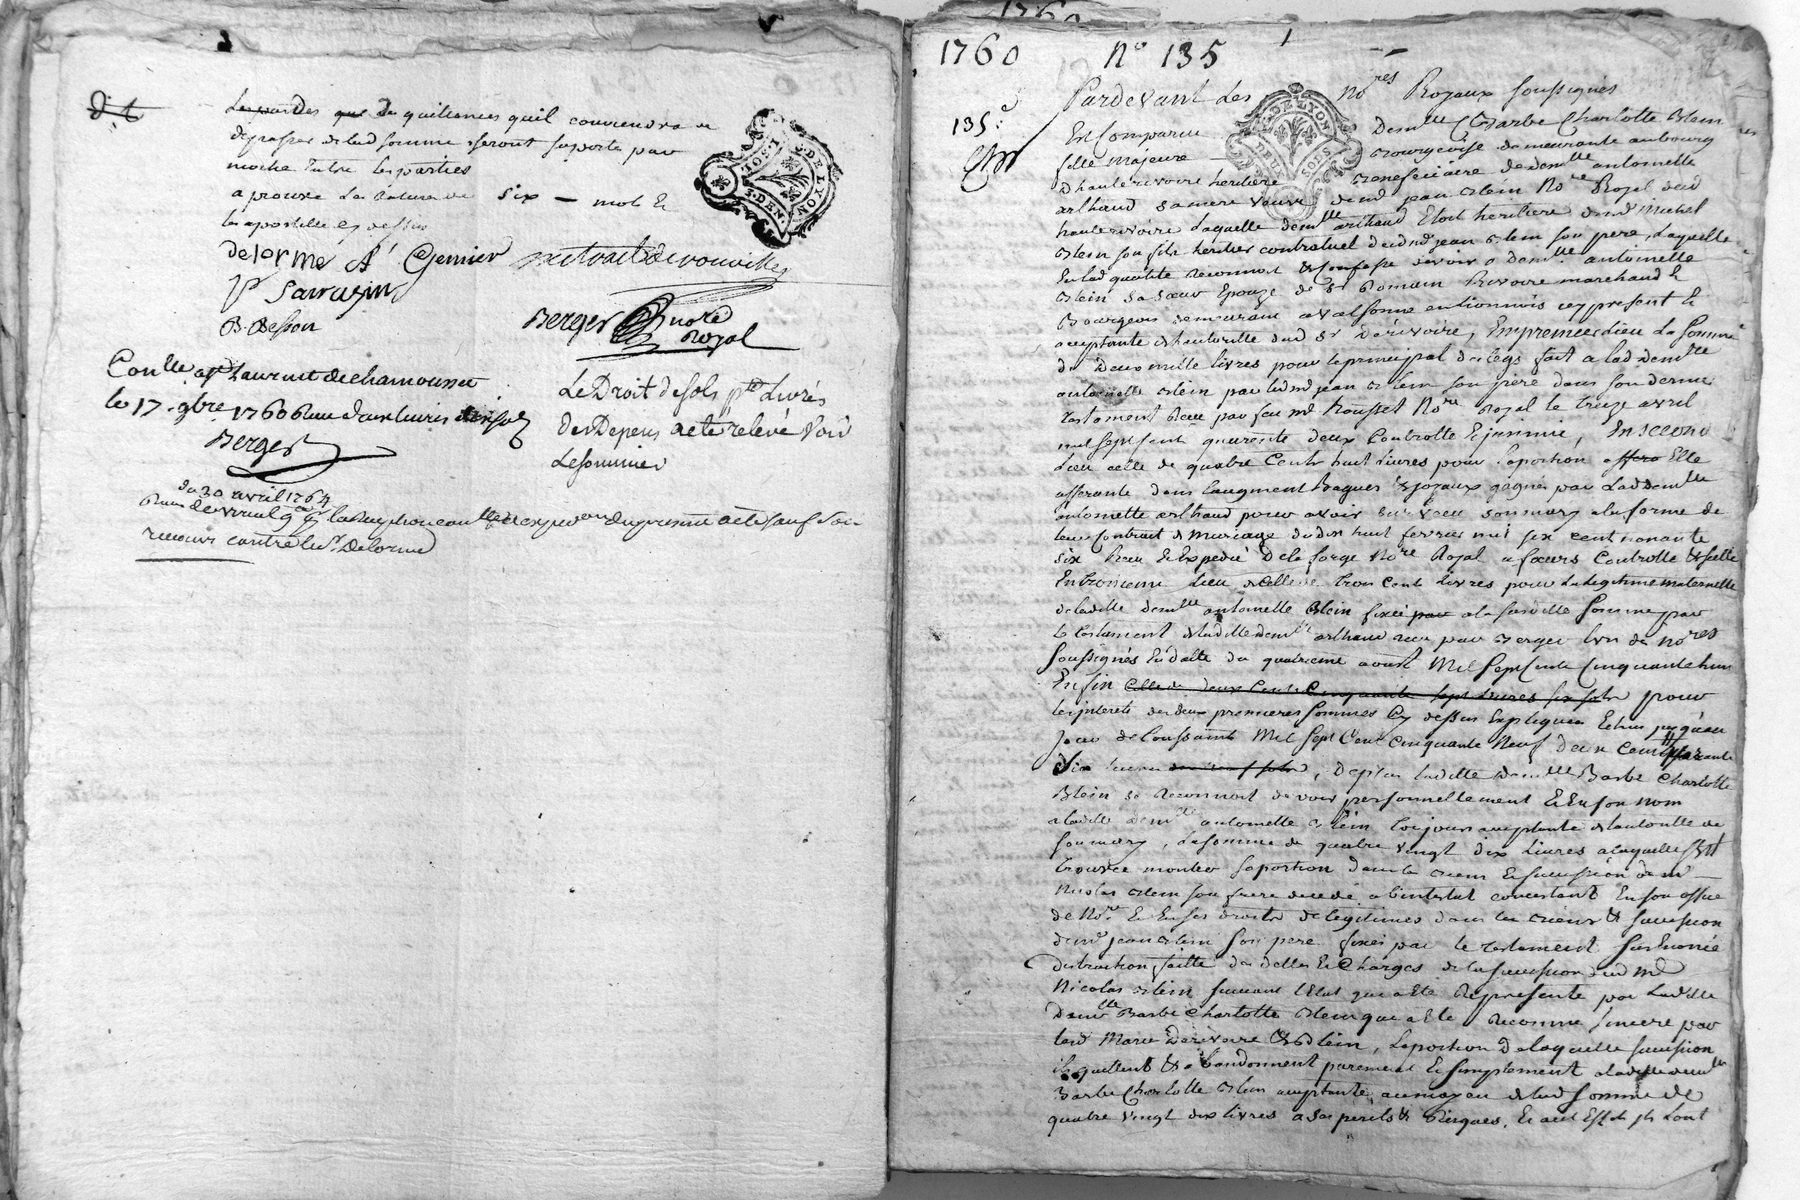 Les gardes que de quittances quil conviendra
de passer de lad somme seront suporté par
moitié Entre les parties
aprouvé La rature de six mots &
lapostille cy dessus
delorme A. Gemier
P Sarrazin
B. Besson
Berger nore
Royal
Conllé a St Laurent de chamousset
le 17. 9bre 1760
Berger
Le Droit de sols ptr Livres
Des Depens acté relevé Voir
Lesommier
du 30 avril 1764
recours contre le sr. Delorme
S. DE LYON
2. SOL
S. DEN.
1760 n° 135
Pardevant Les nores Royaux soussignés
135e
G. DE LYON
DEUX SOLS
Est Comparue demlle Barbe Charlotte Blein
fille majeure bourgeoise demeurante au bourg
Dhauterivoire heritiere beneficiaire de demlle antoinette
arthaud sa mere veuve de md jean Blein Nore Royal dud
hauterivoire Laquelle demlle arthaud Etoit heritiere de md Michel
Blein son fils heritier contratuel dud md jean Blein son pere, Laquelle
En lad qualité reconnoit & confesse devoir a demlle antoinette
Blein sa sœur Epouze de sr Romain Rivoire marchand &
Bourgeois demeurant a valsonne en lionnois icy presente &
acceptante & hautorisée dud sr Derivoire, En premier Lieu La somme
de Deux mille livres pour le principal du legs fait a lad demlle
antoinette Blein par led md jean Blein son pere dans son dernier
testament Recu par feu me trousset Nore Royal le treize avril
mil sept cent quarente deux Controllé & insinué, En second
Lieu celle de quatre Cents huit Livres pour laportion Elle
afferante dans laugment Bagues & joyaux gagnés par Laddemlle
antoinette arthaud pour avoir survecu son mary a la forme de
leur Contrait de mariage du dix huit fevrier mil six cent nonante
six Recu & Expedié Delaforge Nore Royal a fœurs Controllé & scellé
En troisieme Lieu celle de trois Cent Livres pour La Legitime maternelle
de ladite demlle antoinette Blein fixée a la susditte somme par
le testament de laditte demlle arthaud recu par Berger lun de Nores
soussignés En datte du quatrieme aoust Mil sept cents Cinquante hun
Enfin celle de deux Cents Cinquante sept livres six sols pour
les interets des deux premieres sommes cy dessus Expliquées Echus jusqu'au
jour de toussaint Mil sept Cent Cinquante Neuf deux Cent quarante
Six livres, De plus laditte Demlle Barbe Charlotte
Blein se Reconnoit devoir personnellement & En son nom
a laditte demlle antoinette Blein toujours acceptante & hautorisée de
son mary, Lasomme de quatre vingt dix Livres a laquelle s'est
trouvée monter saportion dans les biens & succession de md
Nicolas Blein son frere decedé ab intestat consistant En son office
de Nore & En ses droits de legitimes dans les biens & succession
de md jean Blein son pere fixés par le testament susEnoncé
distraction faitte des dettes & Charges de la succession dud md
Nicolas Blein suivant l'Etat qui a Eté Representé par Laditte
Demlle Barbe Charlotte Blein qui a Eté reconnu sincere par
lesd Mariés Derivoire & Blein, Laportion De laquelle succession
ils quittent & abandonnent purement & simplement a laditte demlle
Barbe Charlotte Blein acceptante, au moyen de lad somme de
quatre vingt dix livres a ses perils & Risques. &